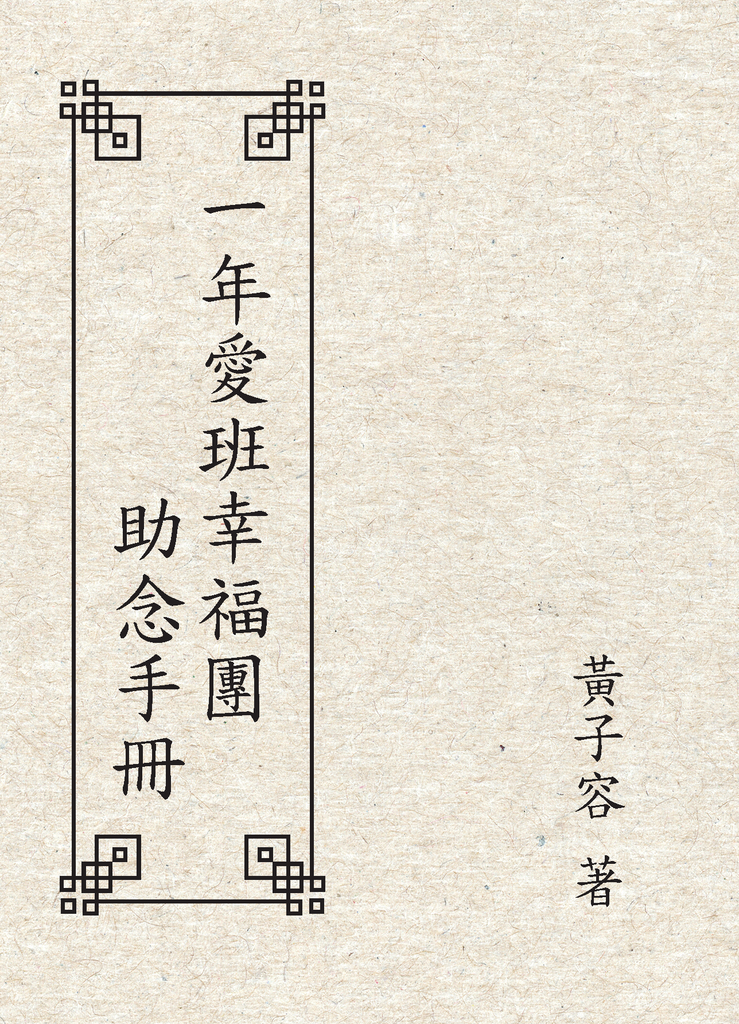 一年愛班幸福團
助念手冊
黃子容 著